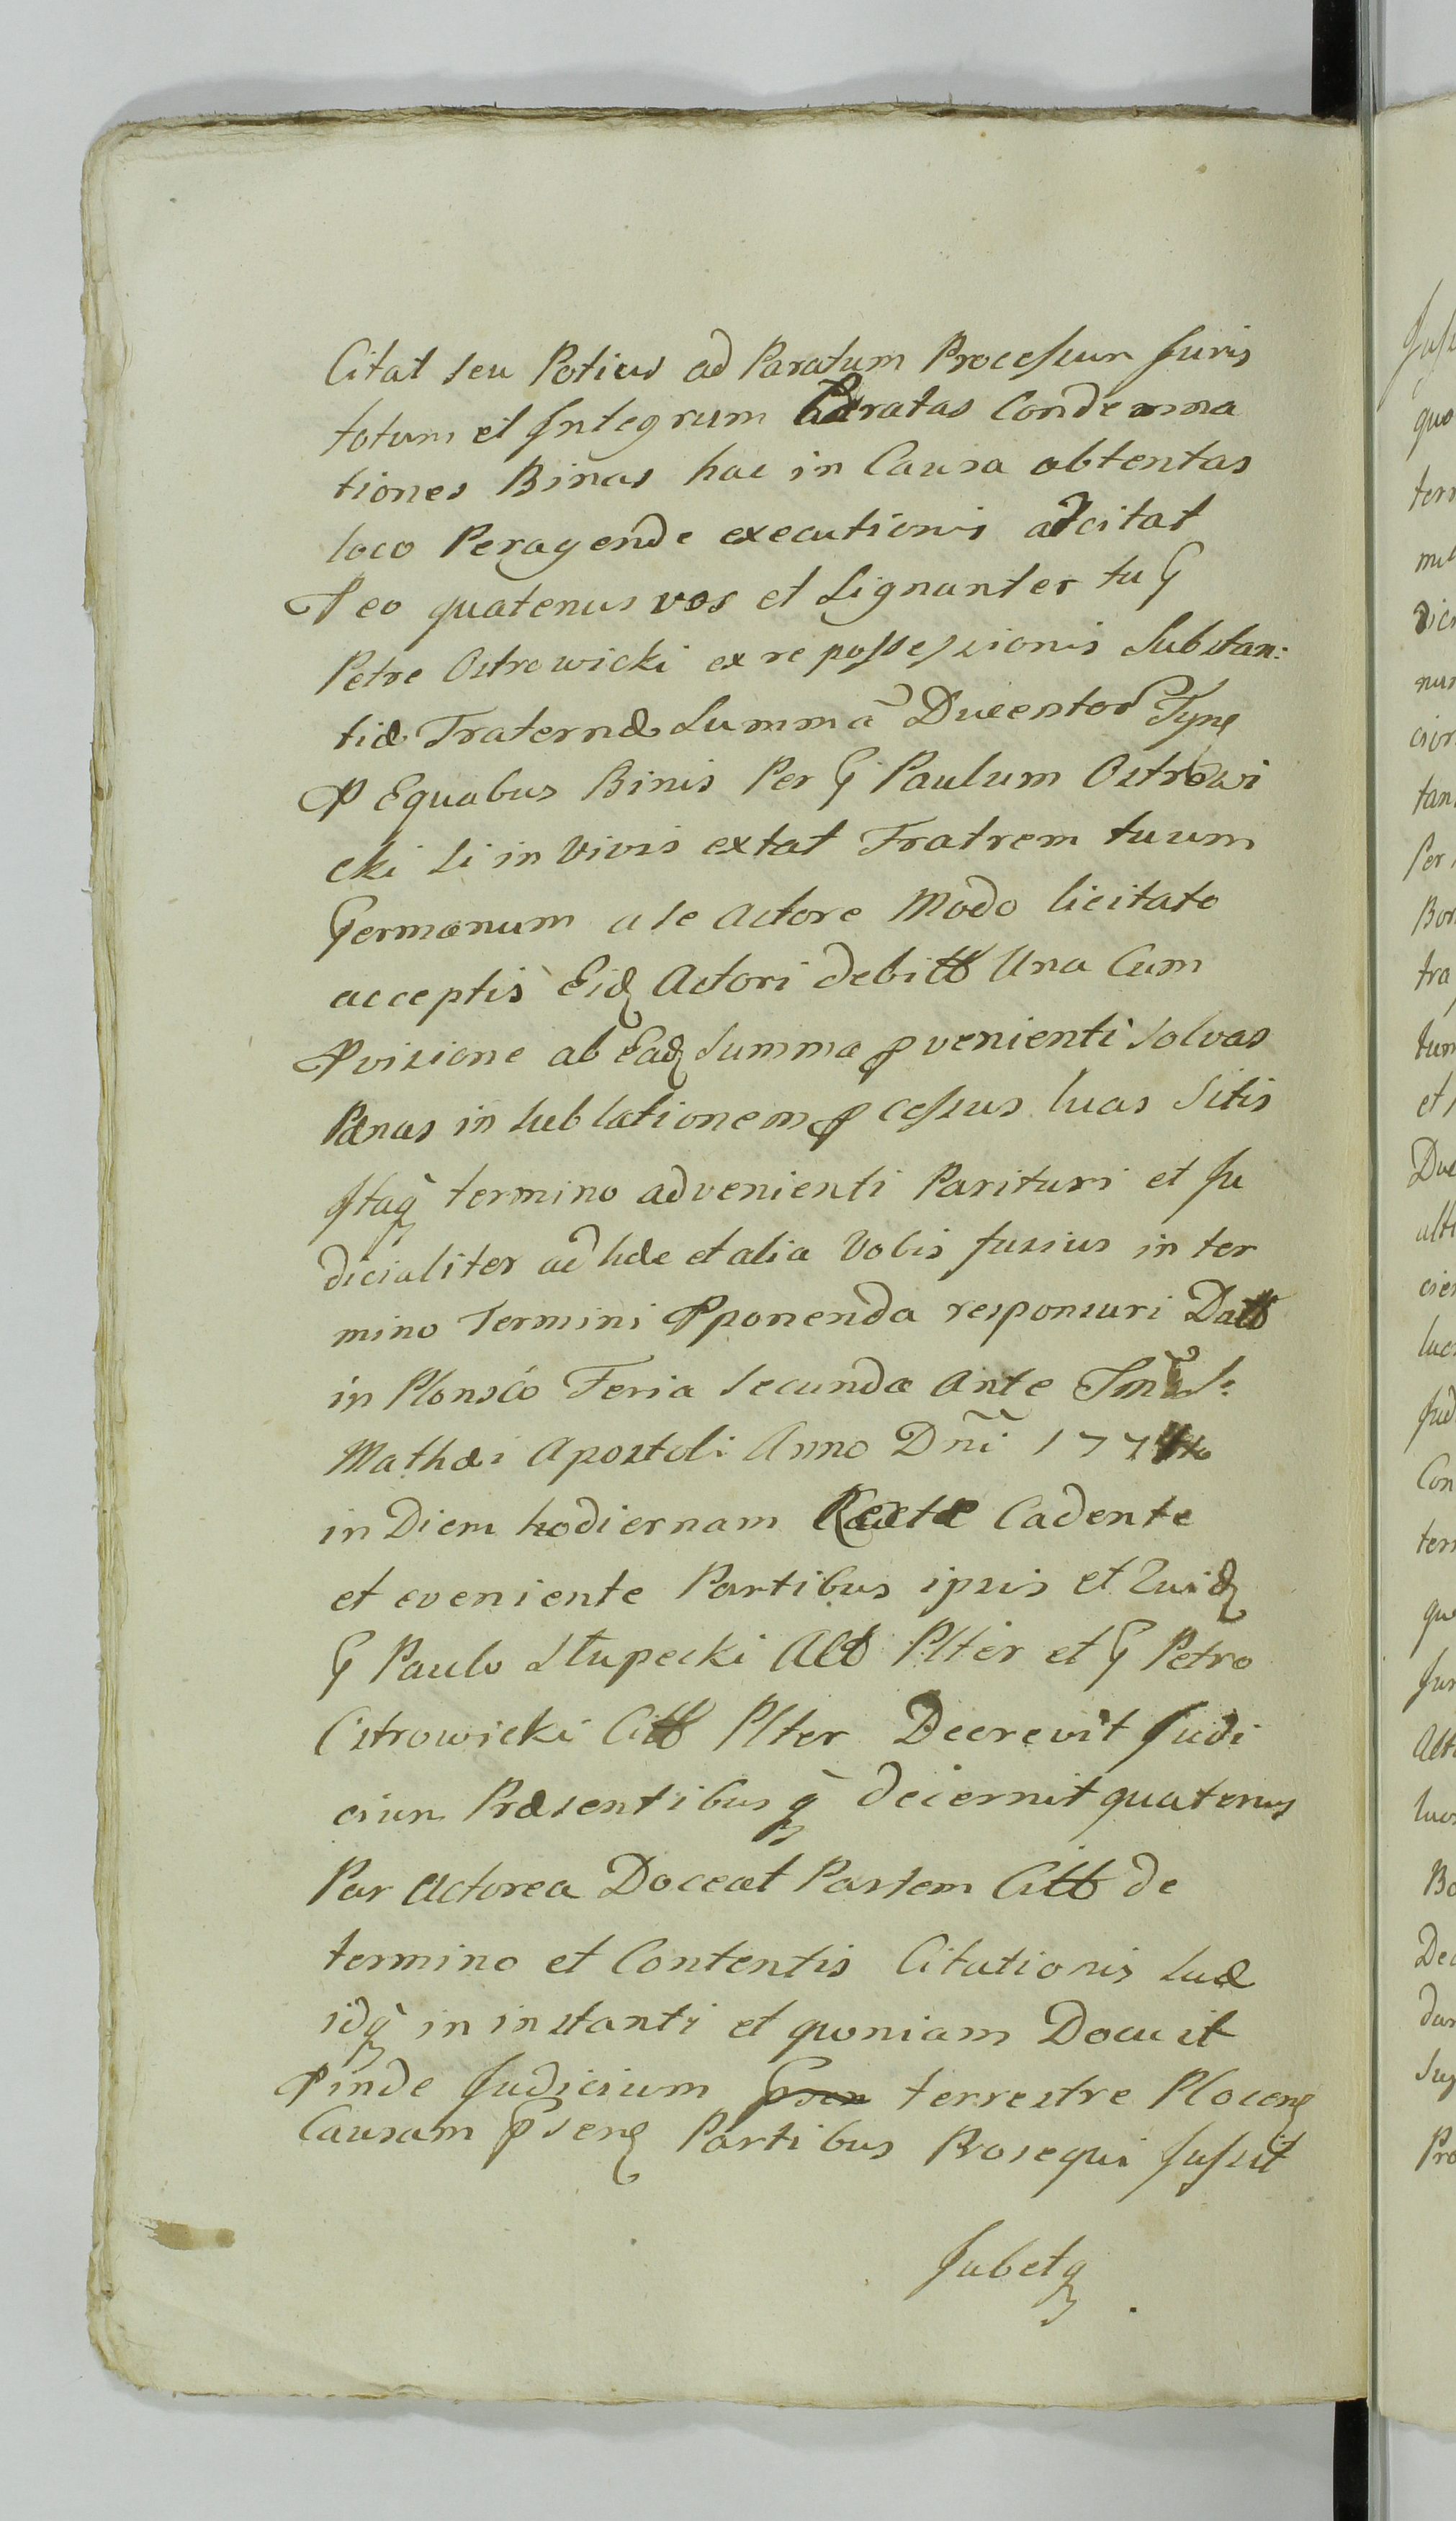 Citat seu Potius ad Paratum Processum Juris
totum et Integrum Paratas Condemna
tiones Binas hac in Causa obtentas
loco Peragendæ executionis adcitat
P eo quatenus vos et signanter tu G
Petre Ostrowicki ex re possessionis Substan:
tiæ Fraternæ Summã Ducentor Tynf
P Equabus Binis Per G Paulum Ostrowi
cki si in vivis extat Fratrem tuum
Germanum a se Actore Modo licitato
acceptis Eidq Actori debitt Una Cum
Pvisione ab Eadq Summa pvenienti solvas
Pænas in sublationem pcessus luas Sitis
Itaq termino advenienti Parituri et Ju
dicialiter ad hæc et alia Vobis fusius in ter
mino Termini Pponenda responsuri Datt
in Plonsco Feria Secunda Ante S.
Mathæi Apostoli Anno Dñi
in Diem hodiernam Cadente
et eveniente Partibus ipsis et Quidq
G Paulo Słupecki Act Plter et G Petro
Ostrowicki Citt Plter Decrevit Judi
cium Præsentibus q decernit quatenus
Par Actorea Doceat Partem Citt de
termino et Contentis Citationis suæ
idq in instanti et quoniam Docuit
Pinde Judicium terrestre Plocenq
Causam psenq Partibus Prosequi Jussit
Jubetq